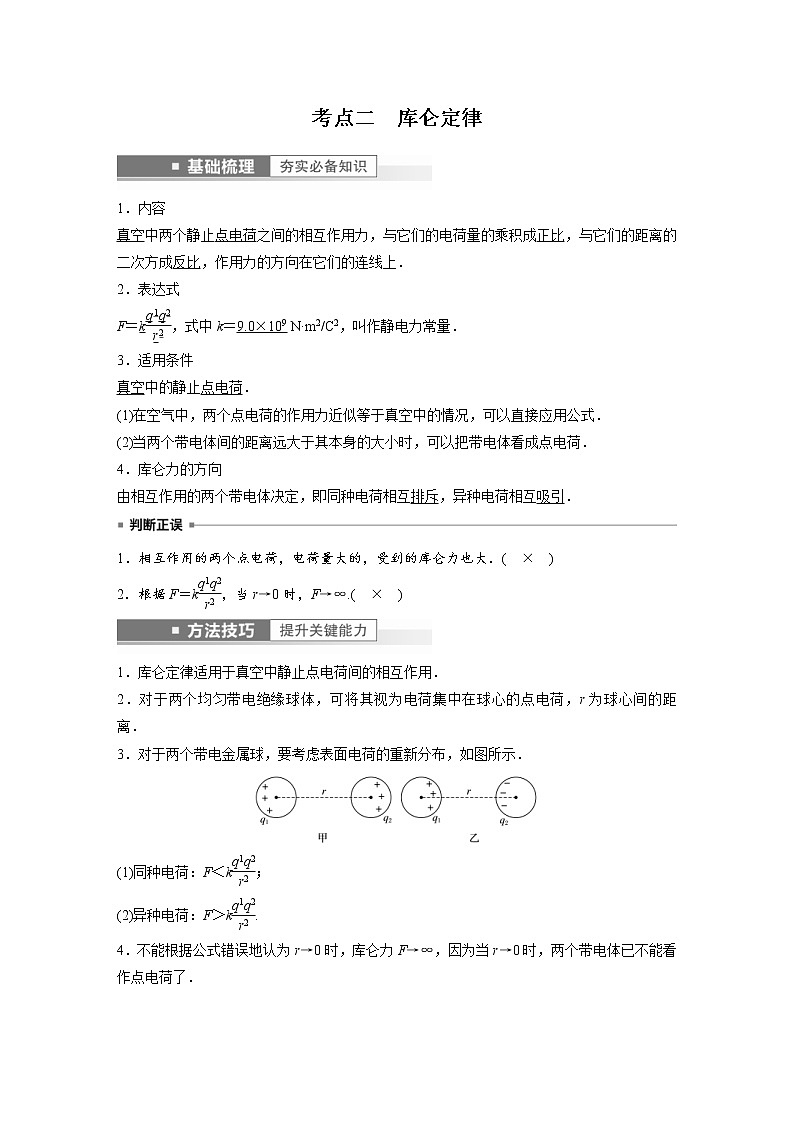 考点二　库仑定律
基础梳理 夯实必备知识
1．内容
真空中两个静止点电荷之间的相互作用力，与它们的电荷量的乘积成正比，与它们的距离的
二次方成反比，作用力的方向在它们的连线上．
2．表达式
F＝kq1q2/r2，式中 k＝9.0×10⁹ N·m²/C²，叫作静电力常量．
3．适用条件
真空中的静止点电荷．
(1)在空气中，两个点电荷的作用力近似等于真空中的情况，可以直接应用公式．
(2)当两个带电体间的距离远大于其本身的大小时，可以把带电体看成点电荷．
4．库仑力的方向
由相互作用的两个带电体决定，即同种电荷相互排斥，异种电荷相互吸引．
判断正误
1．相互作用的两个点电荷，电荷量大的，受到的库仑力也大．(　×　)
2．根据 F＝kq1q2/r2，当 r→0 时，F→∞.(　×　)
方法技巧 提升关键能力
1．库仑定律适用于真空中静止点电荷间的相互作用．
2．对于两个均匀带电绝缘球体，可将其视为电荷集中在球心的点电荷，r 为球心间的距
离．
3．对于两个带电金属球，要考虑表面电荷的重新分布，如图所示．
+ + + r + + + + + + r − − −
q₁ q₂ q₁ q₂
甲 乙
(1)同种电荷：F＜kq1q2/r2；
(2)异种电荷：F＞kq1q2/r2.
4．不能根据公式错误地认为 r→0 时，库仑力 F→∞，因为当 r→0 时，两个带电体已不能看
作点电荷了．